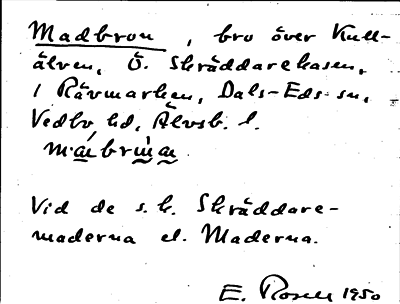 Madbron, bro över Kull-
älven, Ö. Skräddarekasen,
i Rävmarken, Dals-Eds sn,
Vedbo hd, Älvsb. l.
mábrùna
Vid de s.k. Skräddare-
maderna el. Maderna.
E. Rosell 1950